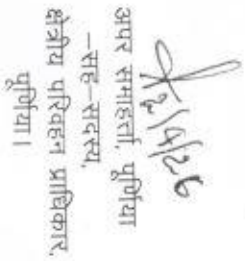 2/4/26
अपर समाहर्त्ता, पूर्णिया
–सह–सदस्य,
क्षेत्रीय परिवहन प्राधिकार,
पूर्णिया।